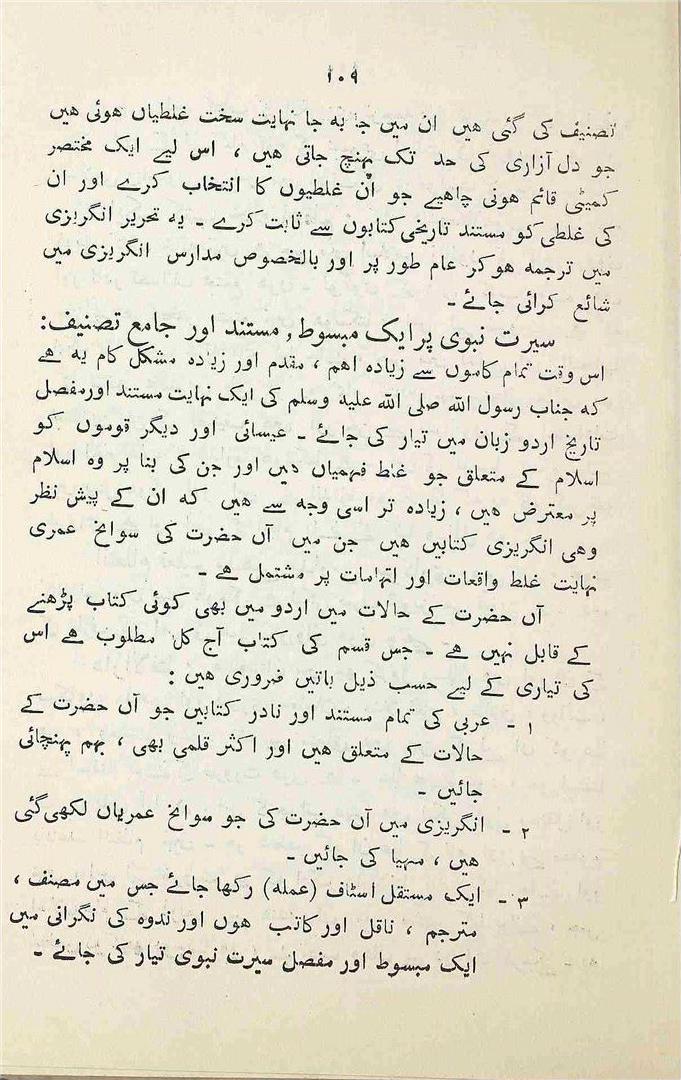 ۱۰۹
تصنیف کی گئی ھیں ان میں جا بہ جا نہایت سخت غلطیاں ھوئی ھیں
جو دل آزاری کی حد تک پہنچ جاتی ھیں ، اس لیے ایک مختصر
کمیٹی قائم ھونی چاھیے جو اُن غلطیوں کا انتخاب کرے اور ان
کی غلطی کو مستند تاریخی کتابوں سے ثابت کرے ۔ یہ تحریر انگریزی
میں ترجمہ ھو کر عام طور پر اور بالخصوص مدارس انگریزی میں
شائع کرائی جائے ۔
سیرت نبوی پر ایک مبسوط ، مستند اور جامع تصنیف :
اس وقت تمام کاموں سے زیادہ اھم ، مقدم اور زیادہ مشکل کام یہ ھے
کہ جناب رسول اللہ صلی اللہ علیہ وسلم کی ایک نہایت مستند اور مفصل
تاریخ اردو زبان میں تیار کی جائے ۔ عیسائی اور دیگر قوموں کو
اسلام کے متعلق جو غلط فہمیاں ھیں اور جن کی بنا پر وہ اسلام
پر معترض ھیں ، زیادہ تر اسی وجہ سے ھیں کہ ان کے پیش نظر
وھی انگریزی کتابیں ھیں جن میں آں حضرت کی سوانح عمری
نہایت غلط واقعات اور اتہامات پر مشتمل ھے ۔
آں حضرت کے حالات میں اردو میں بھی کوئی کتاب پڑھنے
کے قابل نہیں ھے ۔ جس قسم کی کتاب آج کل مطلوب ھے اس
کی تیاری کے لیے حسب ذیل باتیں ضروری ھیں :
۱ ۔ عربی کی تمام مستند اور نادر کتابیں جو آں حضرت کے
حالات کے متعلق ھیں اور اکثر قلمی بھی ، بہم پہنچائی
جائیں ۔
۲ ۔ انگریزی میں آں حضرت کی جو سوانح عمریاں لکھی گئی
ھیں ، مہیا کی جائیں ۔
۳ ۔ ایک مستقل اسٹاف (عملہ) رکھا جائے جس میں مصنف ،
مترجم ، ناقل اور کاتب ھوں اور ندوہ کی نگرانی میں
ایک مبسوط اور مفصل سیرت نبوی تیار کی جائے ۔